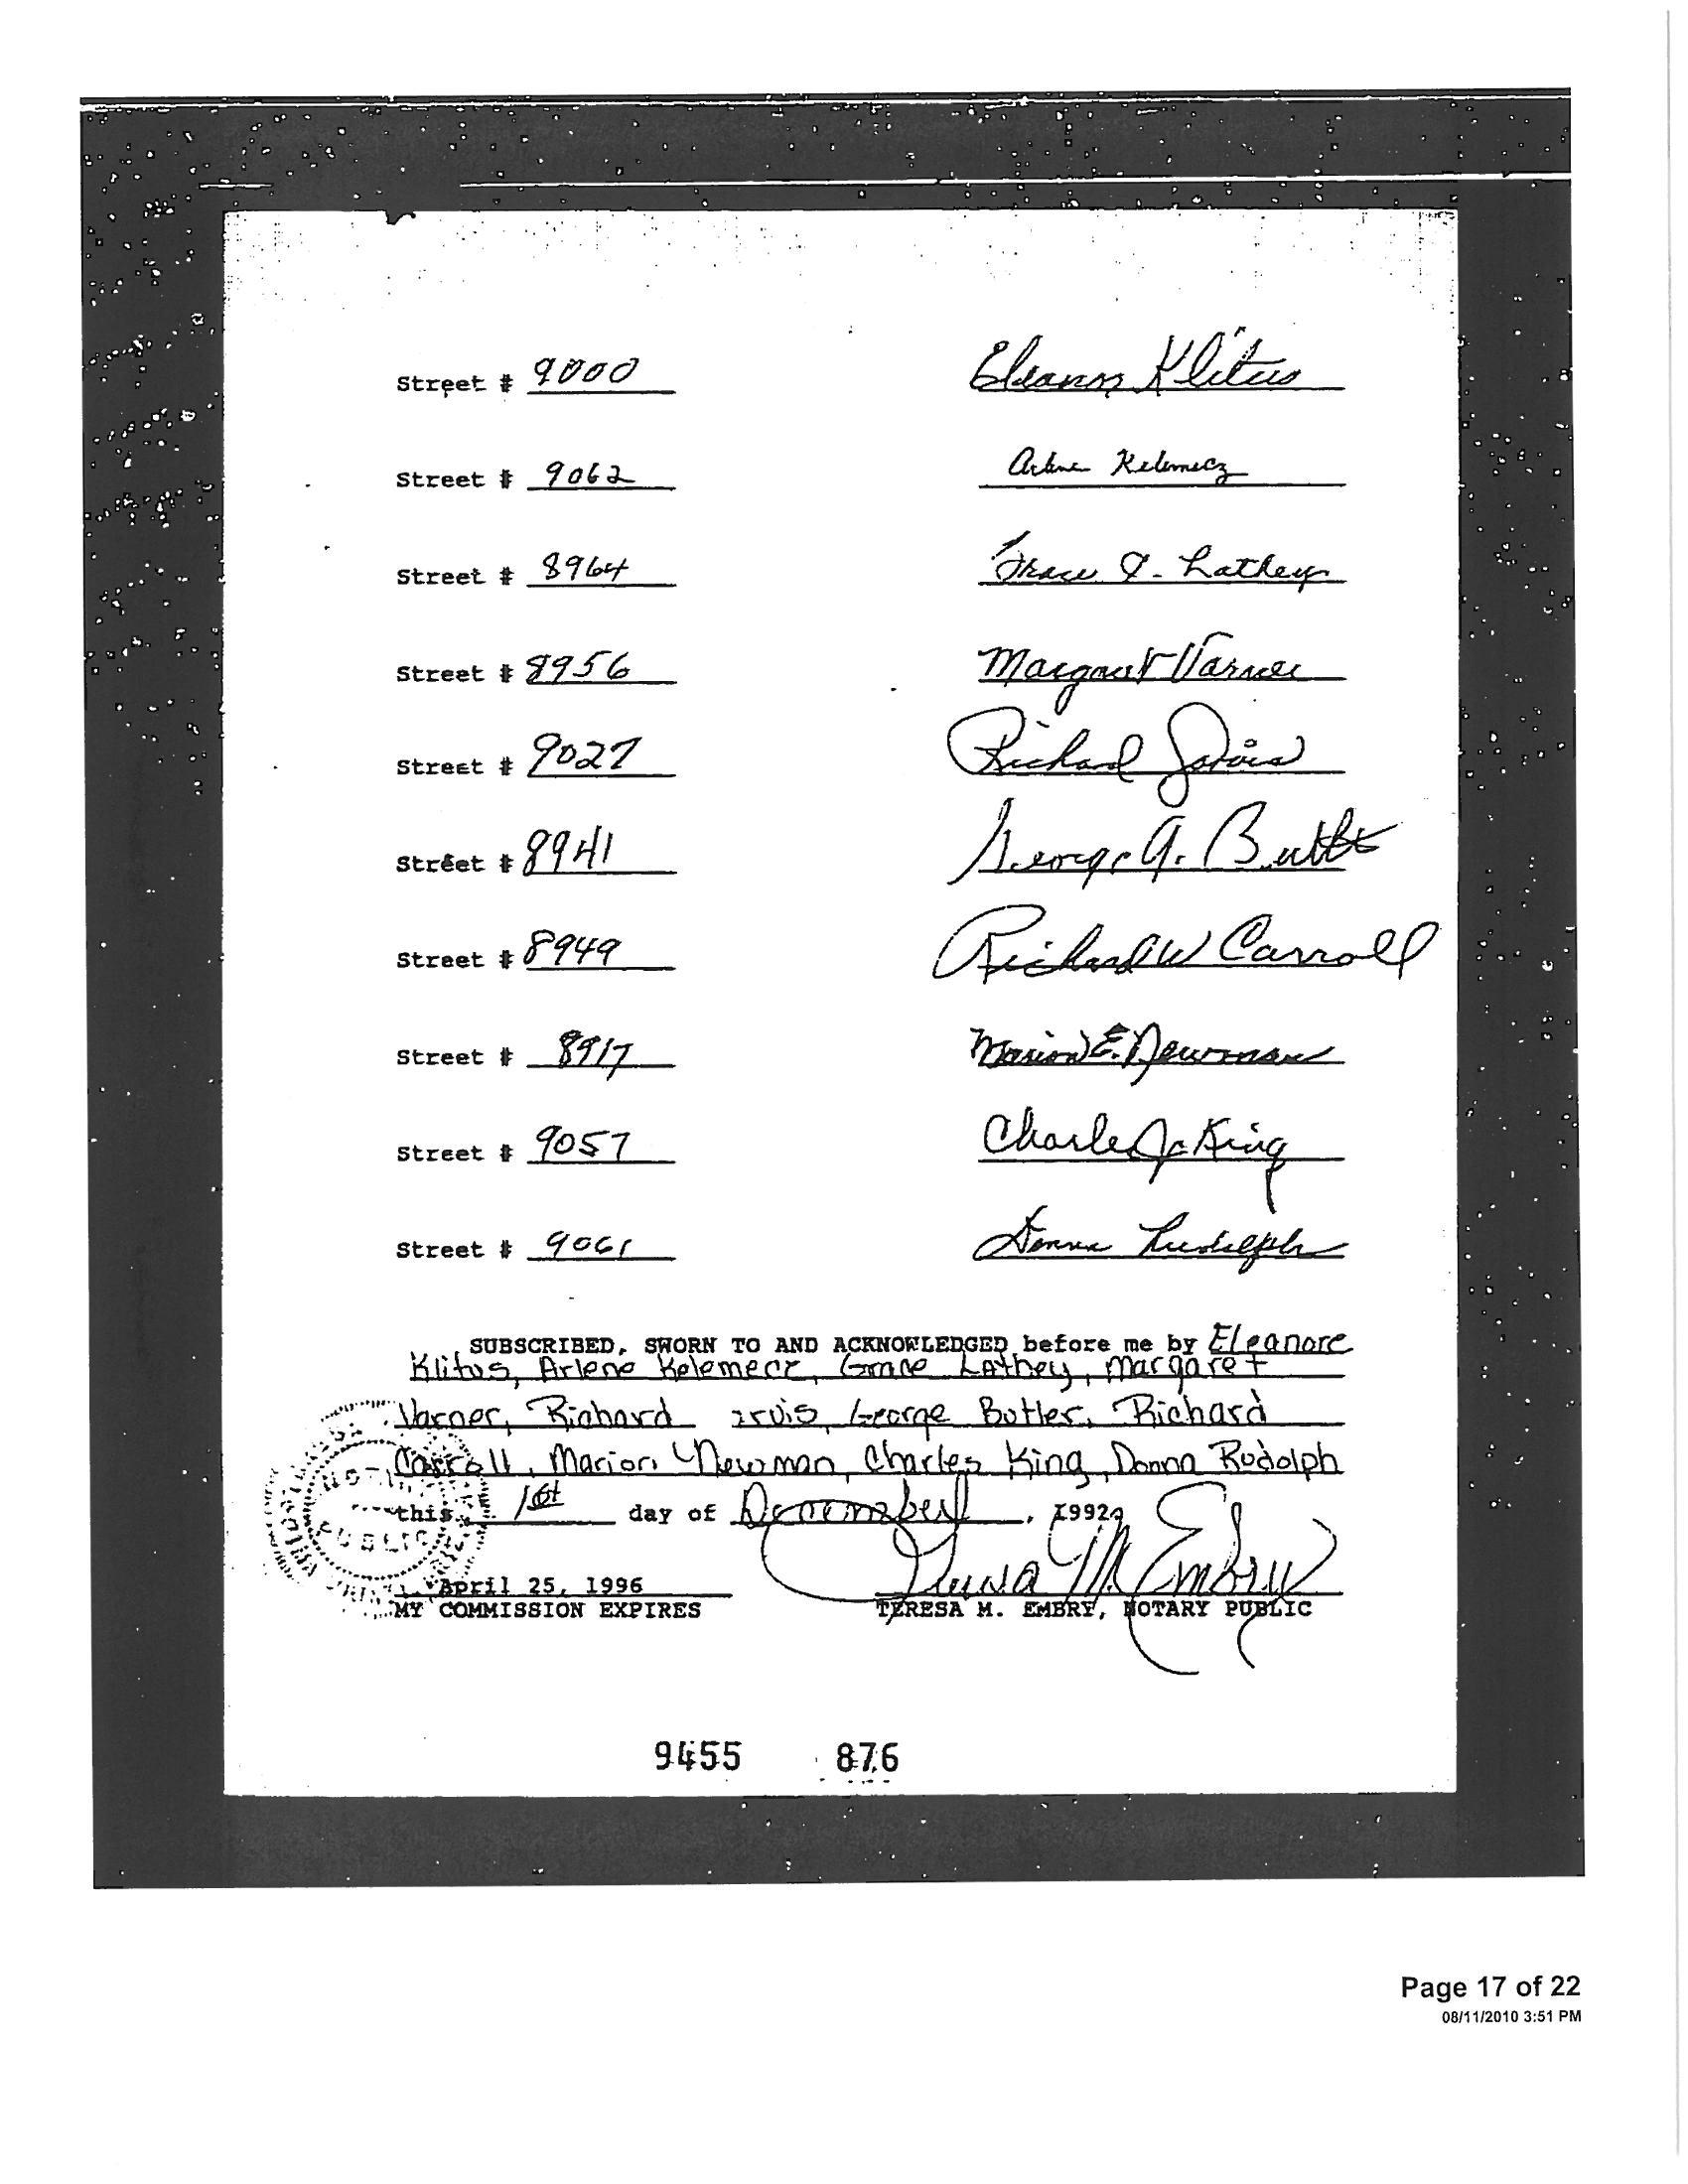 Street # 9000 Eleanor Klitus
Street # 9062 Arlene Kelemecz
Street # 8964 Grace I. Lathey
Street # 8956 Margaret Varner
Street # 9027 Richard Jarvis
Street # 8941 George A. Butler
Street # 8949 Richard W Carroll
Street # 8917 Marion E. Newman
Street # 9057 Charles J. King
Street # 9061 Donna Rudolph
SUBSCRIBED, SWORN TO AND ACKNOWLEDGED before me by Eleanore
Klitus, Arlene Kelemecz, Grace Lathey, Margaret
Varner, Richard arvis, George Butler, Richard
Carroll, Marion Newman, Charles King, Donna Rudolph
this 1st day of December, 1992.
PUBLIC
April 25, 1996 Teresa M. Embry
MY COMMISSION EXPIRES TERESA M. EMBRY, NOTARY PUBLIC
9455 876
Page 17 of 22
08/11/2010 3:51 PM